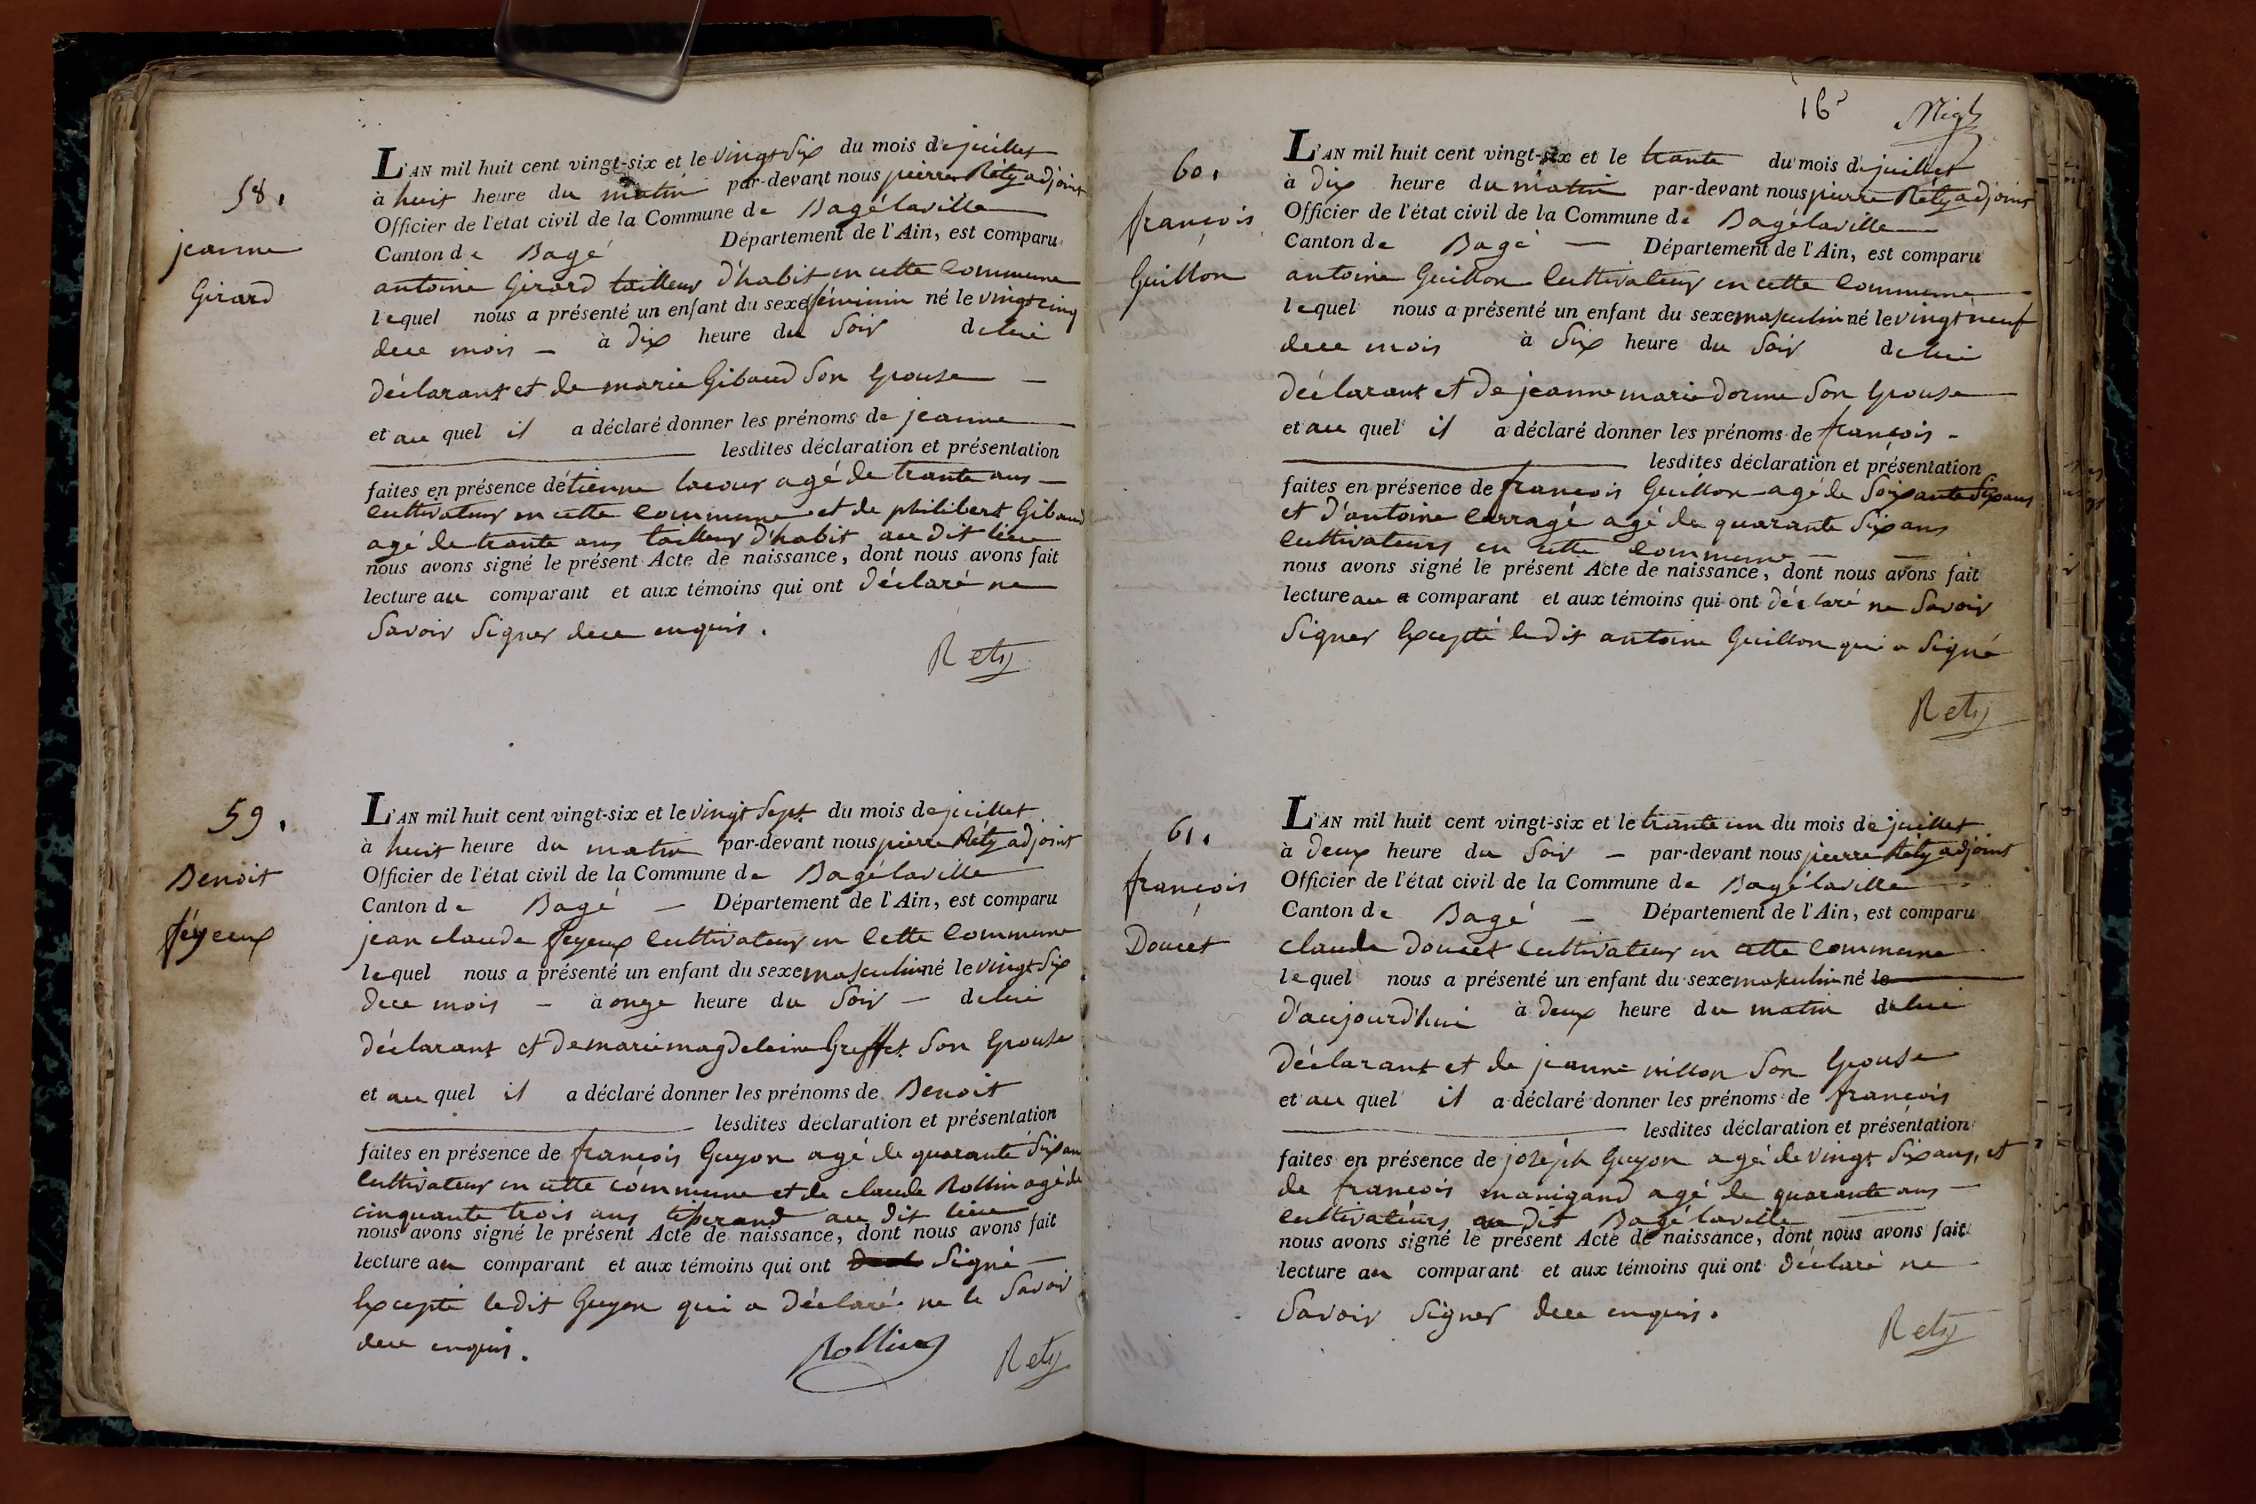 58.
jeanne
Girard
L'AN mil huit cent vingt-six et le vingt Six du mois de juillet
à huit heure du matin par-devant nous pierre Réty adjoint
Officier de l'état civil de la Commune de Bagélaville
Canton de Bagé Département de l'Ain, est comparu
antoine Girard tailleur d'habit en cette Commune
lequel nous a présenté un enfant du sexe féminin né le vingt cinq
dece mois - à dix heure du Soir de lui
déclarant et de marie Gibaud Son Epouse -
et au quel il a déclaré donner les prénoms de jeanne
lesdites déclaration et présentation
faites en présence détienne lacour agé de trante ans -
Cultivateur en cette Commune et de philibert Gibaud
agé de trante ans tailleur d'habit au dit lieu
nous avons signé le présent Acte de naissance, dont nous avons fait
lecture au comparant et aux témoins qui ont déclaré ne
Savoir Signer dece enquis.
Rety
59.
Benoit
féyeux
L'AN mil huit cent vingt-six et le vingt Sept du mois de juillet
à huit heure du matin par-devant nous pierre Réty adjoint
Officier de l'état civil de la Commune de Bagélaville
Canton de Bagé - Département de l'Ain, est comparu
jean claude feyeux Cultivateur en Cette Commune
lequel nous a présenté un enfant du sexe masculin né le vingt Six
dece mois - à onze heure du Soir - de lui
déclarant et de marie magdeleine Greffet Son Epouse
et au quel il a déclaré donner les prénoms de Benoit
lesdites déclaration et présentation
faites en présence de françois Guyon agé de quarante Six ans
Cultivateur en cette commune et de claude Rollin agé de
cinquante trois ans tisserand au dit lieu
nous avons signé le présent Acte de naissance, dont nous avons fait
lecture au comparant et aux témoins qui ont Signé -
Excepté ledit Guyon qui a déclaré ne le Savoir
dece enquis.
Rollin Rety
16
60.
françois
Guillon
L'AN mil huit cent vingt-six et le trante du mois de juillet
à dix heure du matin par-devant nous pierre Réty adjoint
Officier de l'état civil de la Commune de Bagélaville
Canton de Bagé - Département de l'Ain, est comparu
antoine Guillon Cultivateur en cette Commune
lequel nous a présenté un enfant du sexe masculin né le vingt neuf
dece mois à Six heure du Soir de lui
déclarant et de jeanne marie dorme Son Epouse
et au quel il a déclaré donner les prénoms de françois -
lesdites déclaration et présentation
faites en présence de françois Guillon agé de Soixante Six ans
et d'antoine Carragé agé de quarante Six ans
Cultivateurs en cette Commune -
nous avons signé le présent Acte de naissance, dont nous avons fait
lecture au comparant et aux témoins qui ont déclaré ne Savoir
Signer Excepté le dit antoine Guillon qui a Signé
Rety
61.
françois
Doucet
L'AN mil huit cent vingt-six et le trante un du mois de juillet
à deux heure du Soir - par-devant nous pierre Réty adjoint
Officier de l'état civil de la Commune de Bagélaville
Canton de Bagé - Département de l'Ain, est comparu
claude doucet Cultivateur en cette Commune
lequel nous a présenté un enfant du sexe masculin né le
d'aujourd'hui à deux heure du matin de lui
déclarant et de jeanne millon Son Epouse
et au quel il a déclaré donner les prénoms de françois
lesdites déclaration et présentation
faites en présence de joséph Guyon agé de vingt Six ans, et
de françois manigand agé de quarante ans -
Cultivateurs au dit Bagélaville
nous avons signé le présent Acte de naissance, dont nous avons fait
lecture au comparant et aux témoins qui ont déclaré ne
Savoir Signer dece enquis.
Rety